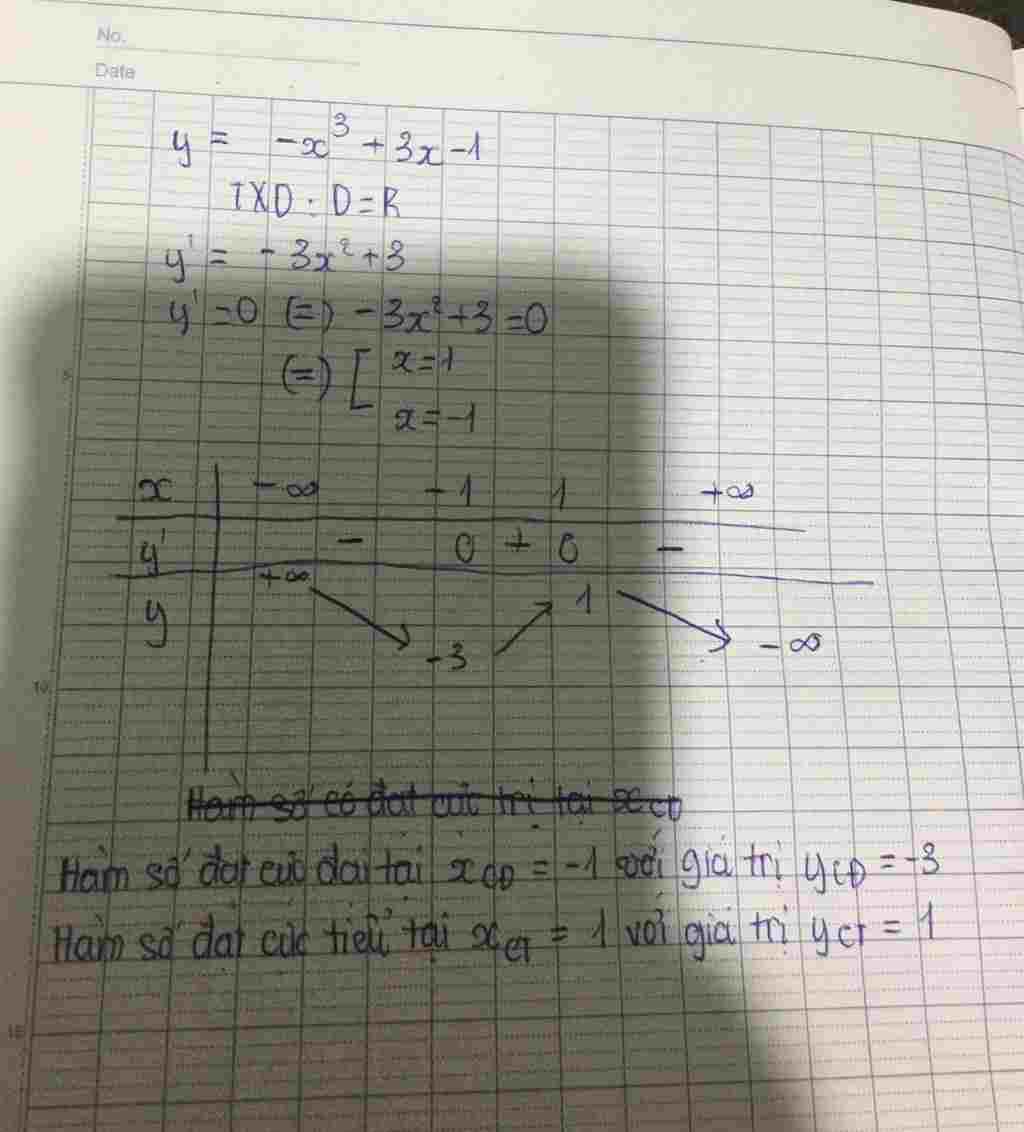 No.
Date
y = -x³ + 3x - 1
TXD : D = R
y' = -3x² + 3
y' = 0 (=) -3x² + 3 = 0
(=) [ x = 1
x = -1
x | -∞ -1 1 +∞
y' | - 0 + 0 -
y | +∞ ↘ -3 ↗ 1 ↘ -∞
5
10
Hàm số có đạt cực trị tại xCĐ
Hàm số đạt cực đại tại xCĐ = -1 với giá trị yCĐ = -3
Hàm số đạt cực tiểu tại xCT = 1 với giá trị yCT = 1
15